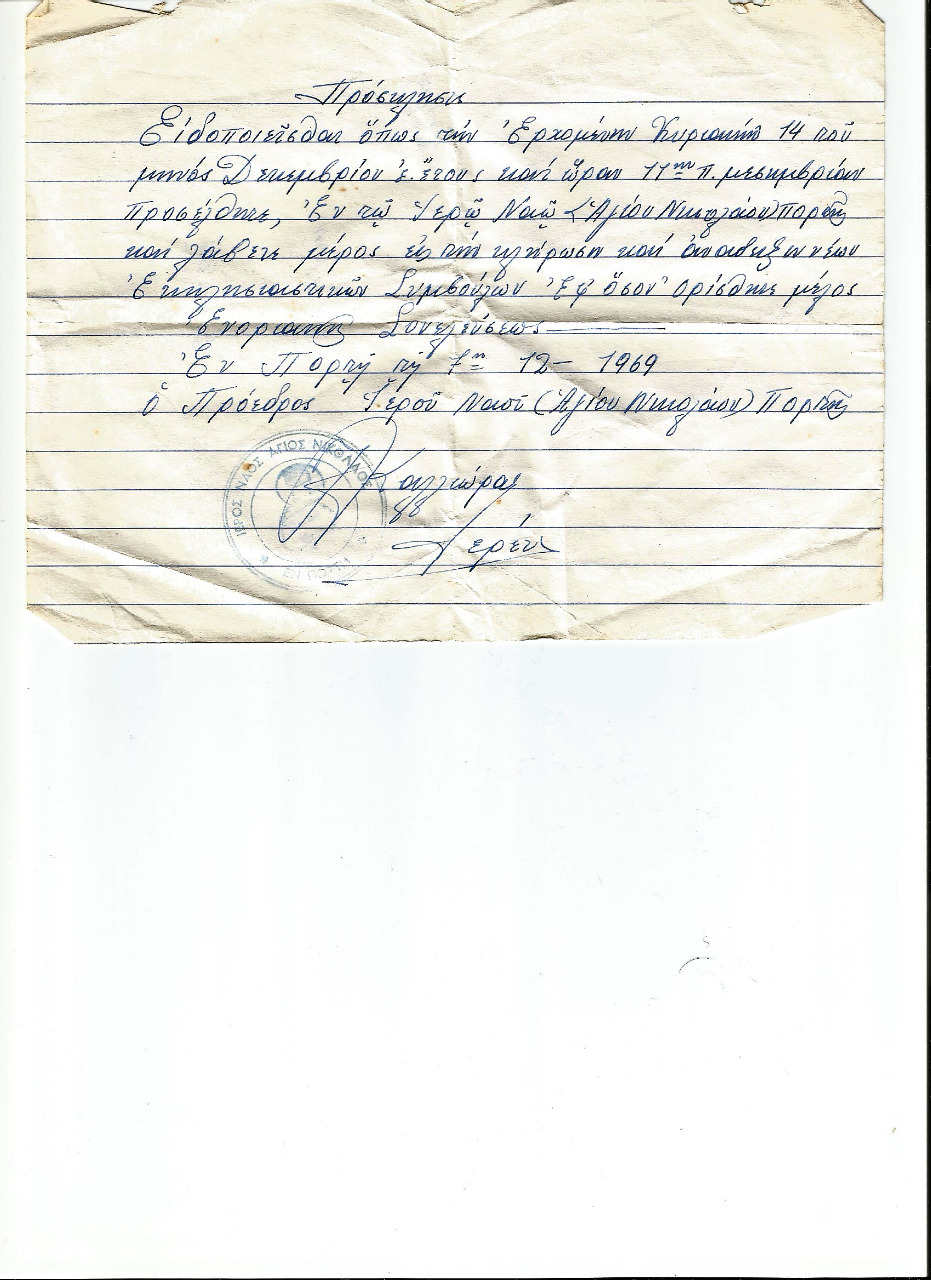 Πρόσκλησις
Εἰδοποιεῖσθαι ὅπως τήν Ἐρχομένην Κυριακήν 14 τοῦ
μηνός Δεκεμβρίου ἐ. ἔτους καί ὥραν 11ην π. μεσημβρίαν
προσέλθητε, Ἐν τῷ Ἱερῷ Ναῷ (Ἁγίου Νικολάου) Πορτῆς
καί λάβετε μέρος εἰς τήν κλήρωση καί ἀναδειξιν νέων
Ἐκκλησιαστικῶν Συμβούλων Ἐφ ὅσον ὁρίσθητε μέλος
Ἐνοριακῆς Συνελεύσεως
Ἐν Πορτῇ τῇ 7ῃ 12 – 1969
ὁ Πρόεδρος Ἱεροῦ Ναοῦ (Ἁγίου Νικολάου) Πορτῆς
ΙΕΡΟΣ ΝΑΟΣ ΑΓΙΟΣ ΝΙΚΟΛΑΟΣ
Ἱερεύς